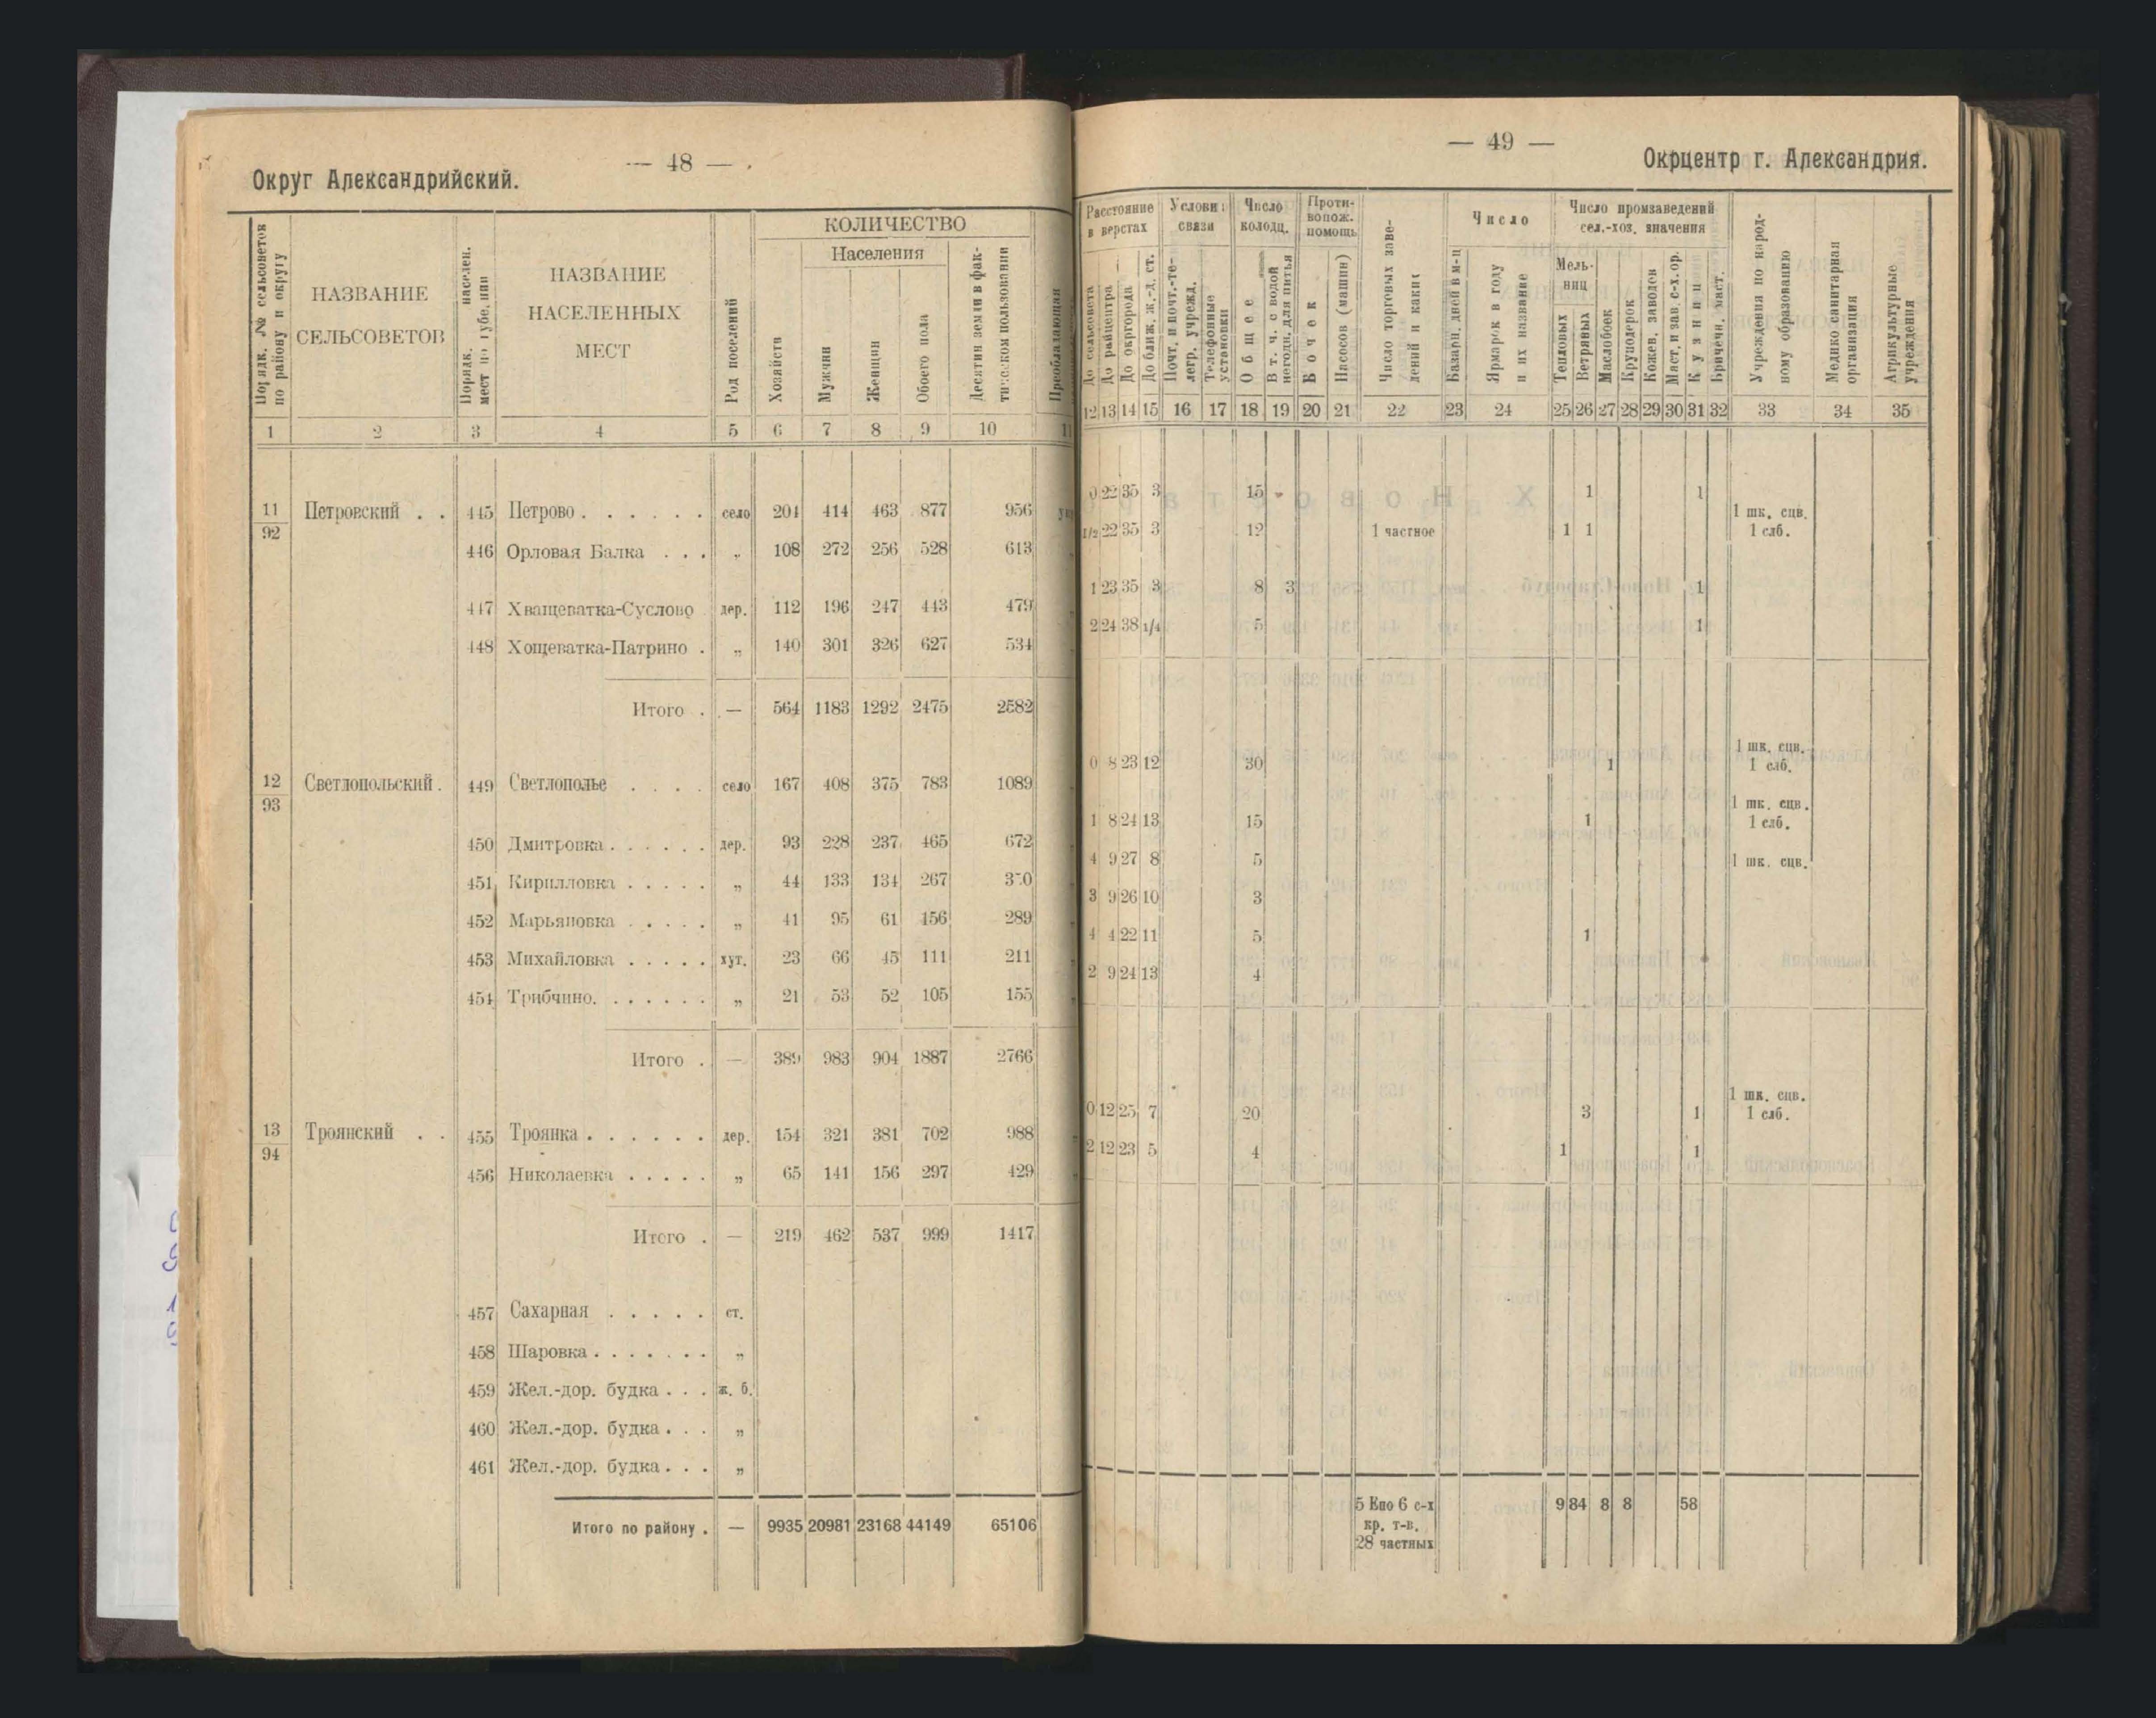 — 48 —
Округ Александрийский.
Порядк. № сельсоветов по району и округу
НАЗВАНИЕ СЕЛЬСОВЕТОВ
Порядк. населен. мест по губернии
НАЗВАНИЕ НАСЕЛЕННЫХ МЕСТ
Род поселений
КОЛИЧЕСТВО
Населения
Хозяйств
Мужчин
Женщин
Обоего пола
Десятин земли в фактическом пользовании
Преобладающая
1 2 3 4 5 6 7 8 9 10 11
11/92 Петровский . . 445 Петрово . . . . . . село 204 414 463 877 956
446 Орловая Балка . . . „ 108 272 256 528 613
447 Хващеватка-Суслово дер. 112 196 247 443 479
448 Хощеватка-Патрино . „ 140 301 326 627 534
Итого . — 564 1183 1292 2475 2582
12/93 Светлопольский . 449 Светлополье . . . . село 167 408 375 783 1089
450 Дмитровка . . . . . . дер. 93 228 237 465 672
451 Кирилловка . . . . . „ 44 133 134 267 350
452 Марьяновка . . . . . „ 41 95 61 156 289
453 Михайловка . . . . . хут. 23 66 45 111 211
454 Трибчино. . . . . . . „ 21 53 52 105 155
Итого . — 389 983 904 1887 2766
13/94 Троянский . . 455 Троянка . . . . . . дер. 154 321 381 702 988
456 Николаевка . . . . . „ 65 141 156 297 429
Итого . — 219 462 537 999 1417
457 Сахарная . . . . . ст.
458 Шаровка . . . . . . . „
459 Жел.-дор. будка . . . ж. б.
460 Жел.-дор. будка . . . „
461 Жел.-дор. будка . . . „
Итого по району . — 9935 20981 23168 44149 65106
— 49 —
Окрцентр г. Александрия.
Расстояние в верстах
До сельсовета
До райцентра
До окргорода
До ближ. ж.-д. ст.
Услови связи
Почт. и почт.-телегр. учрежд.
Телефонные установки
Число колодц.
Общее
В т. ч. с водой негодн. для питья
Противопож. помощь
Бочек
Насосов (машин)
Число торговых заведений и каких
Число
Базарн. дней в м-ц
Ярмарок в году и их название
Число промзаведений сел.-хоз. значения
Мельниц
Тепловых
Ветряных
Маслобоек
Круподерок
Кожев. заводов
Маст. и зав. с-х. ор.
Кузниц
Бричечн. маст.
Учреждения по народному образованию
Медико санитарная организация
Агрикультурные учреждения
12 13 14 15 16 17 18 19 20 21 22 23 24 25 26 27 28 29 30 31 32 33 34 35
0 22 35 3 15 1 1 1 шк. сцв. 1 слб.
1/2 22 35 3 12 1 частное 1 1
1 23 35 3 8 3 1
2 24 38 1/4 5 1
0 8 23 12 30 1 1 шк. сцв. 1 слб.
1 8 24 13 15 1 1 шк. сцв. 1 слб.
4 9 27 8 5 1 шк. сцв.
3 9 26 10 3
4 4 22 11 5 1
2 9 24 13 4
0 12 25 7 20 3 1 1 шк. сцв. 1 слб.
2 12 23 5 4 1 1
5 Епо 6 с-х кр. т-в. 28 частных 9 84 8 8 58